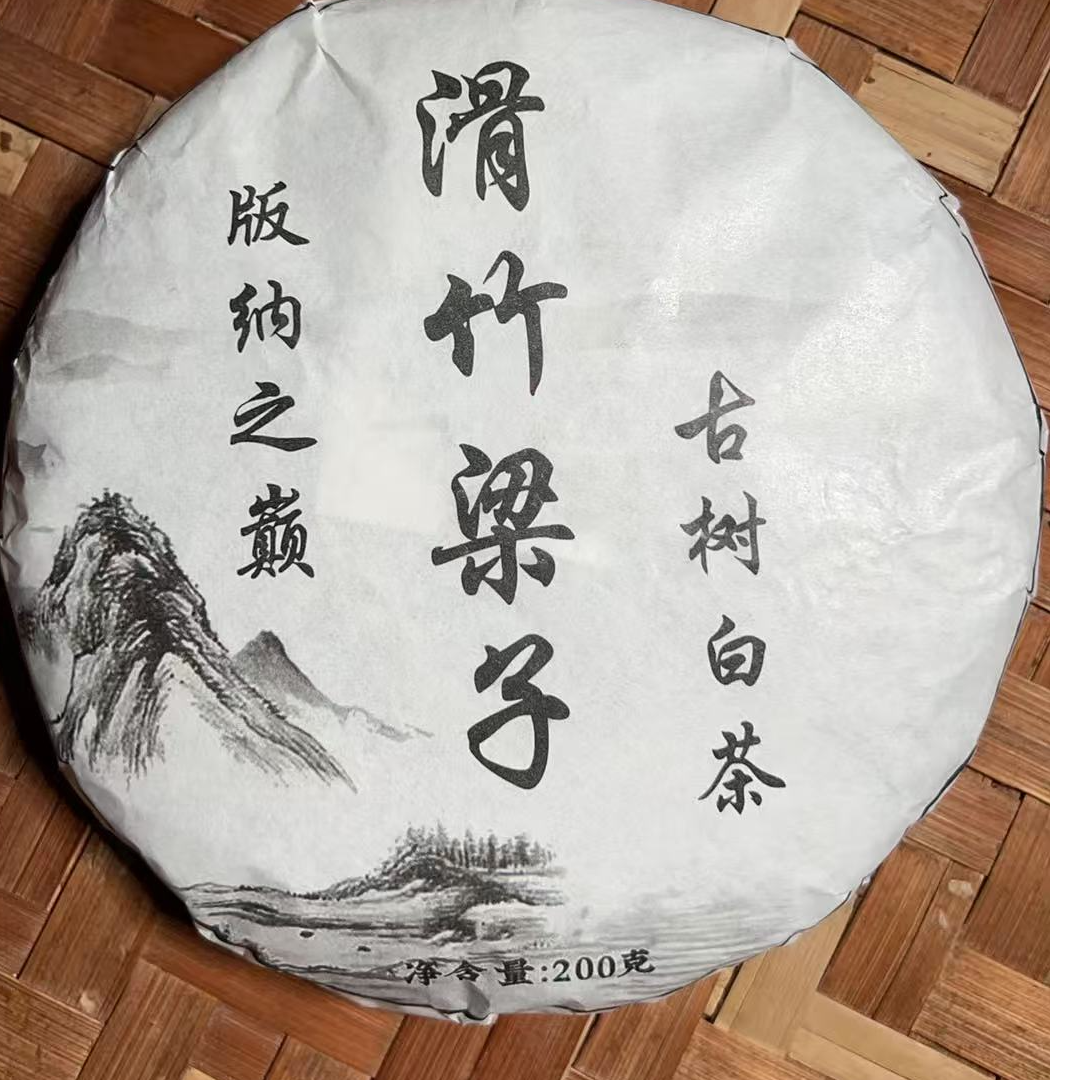 滑竹梁子
版纳之巅
古树白茶
净含量:200克